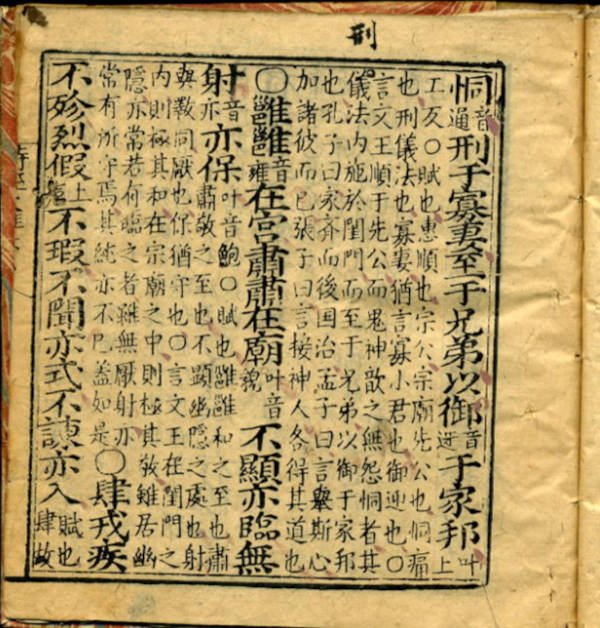 刑
恫音通刑于寡妻至于兄弟以御音迓于家邦叶上
工反〇賦也惠順也宗公宗廟先公也恫痛
也刑儀法也寡妻猶言寡小君也御迎也〇
言文王順于先公而鬼神歆之無怨恫者其
儀法内施於閨門而至于兄弟以御于家邦
也孔子曰家齊而後国治孟子曰言舉斯心
加諸彼而已張子曰言接神人各得其道也
〇雝雝音雍在宮肅肅在廟叶音貌不顯亦臨無
射音亦亦保叶音鮑〇賦也雝雝和之至也肅
肅敬之至也不顯幽隱之處也射
與斁同厭也保猶守也〇言文王在閨門之
内則極其和在宗廟之中則極其敬雖居幽
隱亦常若何臨之者雖無厭射亦
常有所守焉其純亦不已蓋如是〇肆戎疾
不殄烈假上不瑕不聞亦式不諫亦入賦也肆故